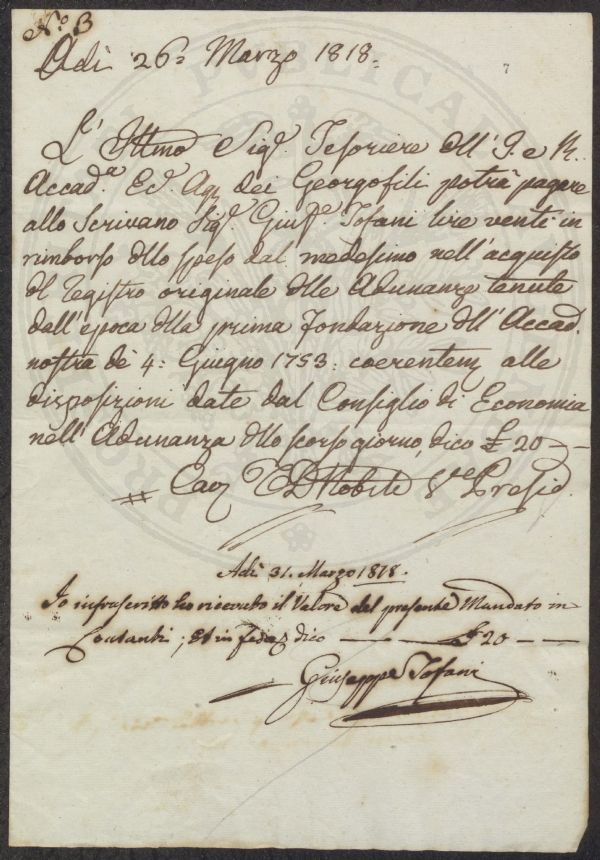 N.° 3
Adì 26: Marzo 1818:
L' Illmo Sig.r Tesoriere dell' I. e R.
Accad.a Ec.o Ag. dei Georgofili potrà pagare
allo Scrivano Sig.r Gius.e Tofani lire venti in
rimborso dello speso dal medesimo nell' acquisto
del Registro originale delle Adunanze tenute
dall' epoca della prima Fondazione dell' Accad.
nostra de 4: Giugno 1753: coerentem alle
disposizioni date dal Consiglio di Economia
nell' Adunanza dello scorso giorno, dico £ 20
Presid.
Adì 31. Marzo 1818.
Io infrascritto ho ricevuto il Valore del presente Mandato in
Contanti; Et in fede dico £ 20
Giuseppe Tofani